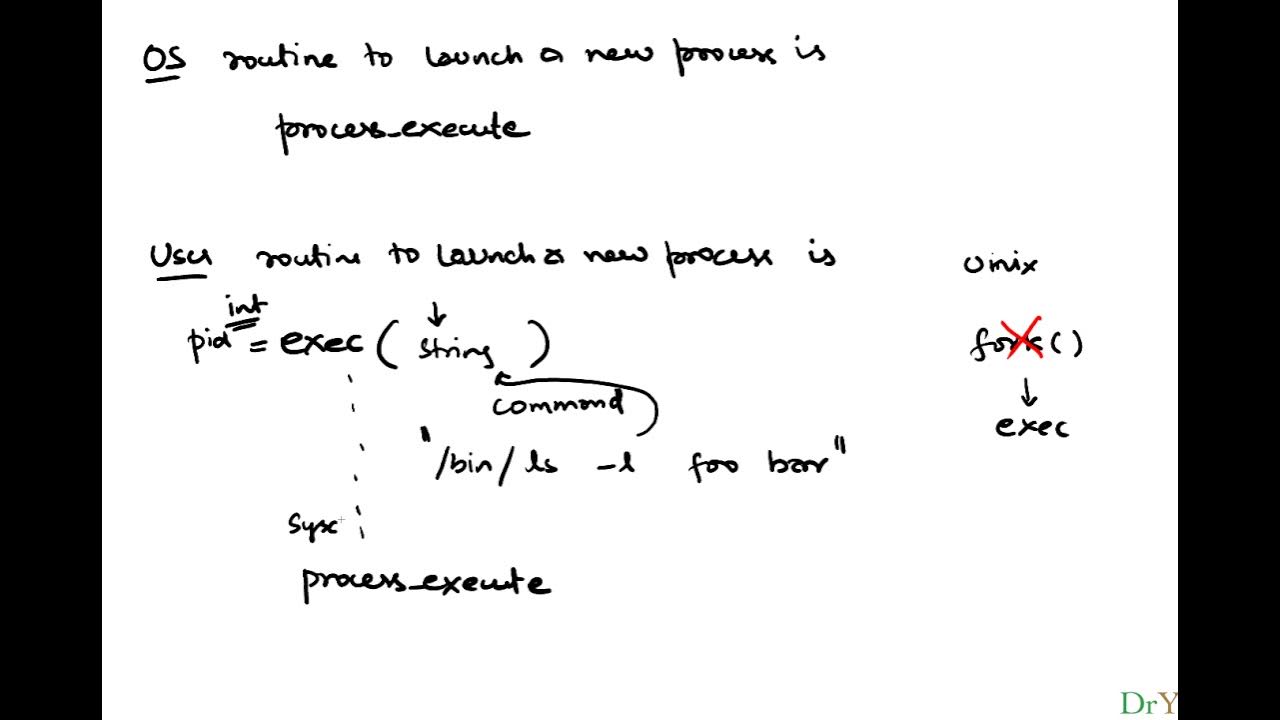 OS routine to launch a new process is
process_execute
User routine to launch a new process is
Unix
int
pid = exec ( string )
fork()
command
exec
"/bin/ls -l foo bar"
sysc
process_execute
DrY